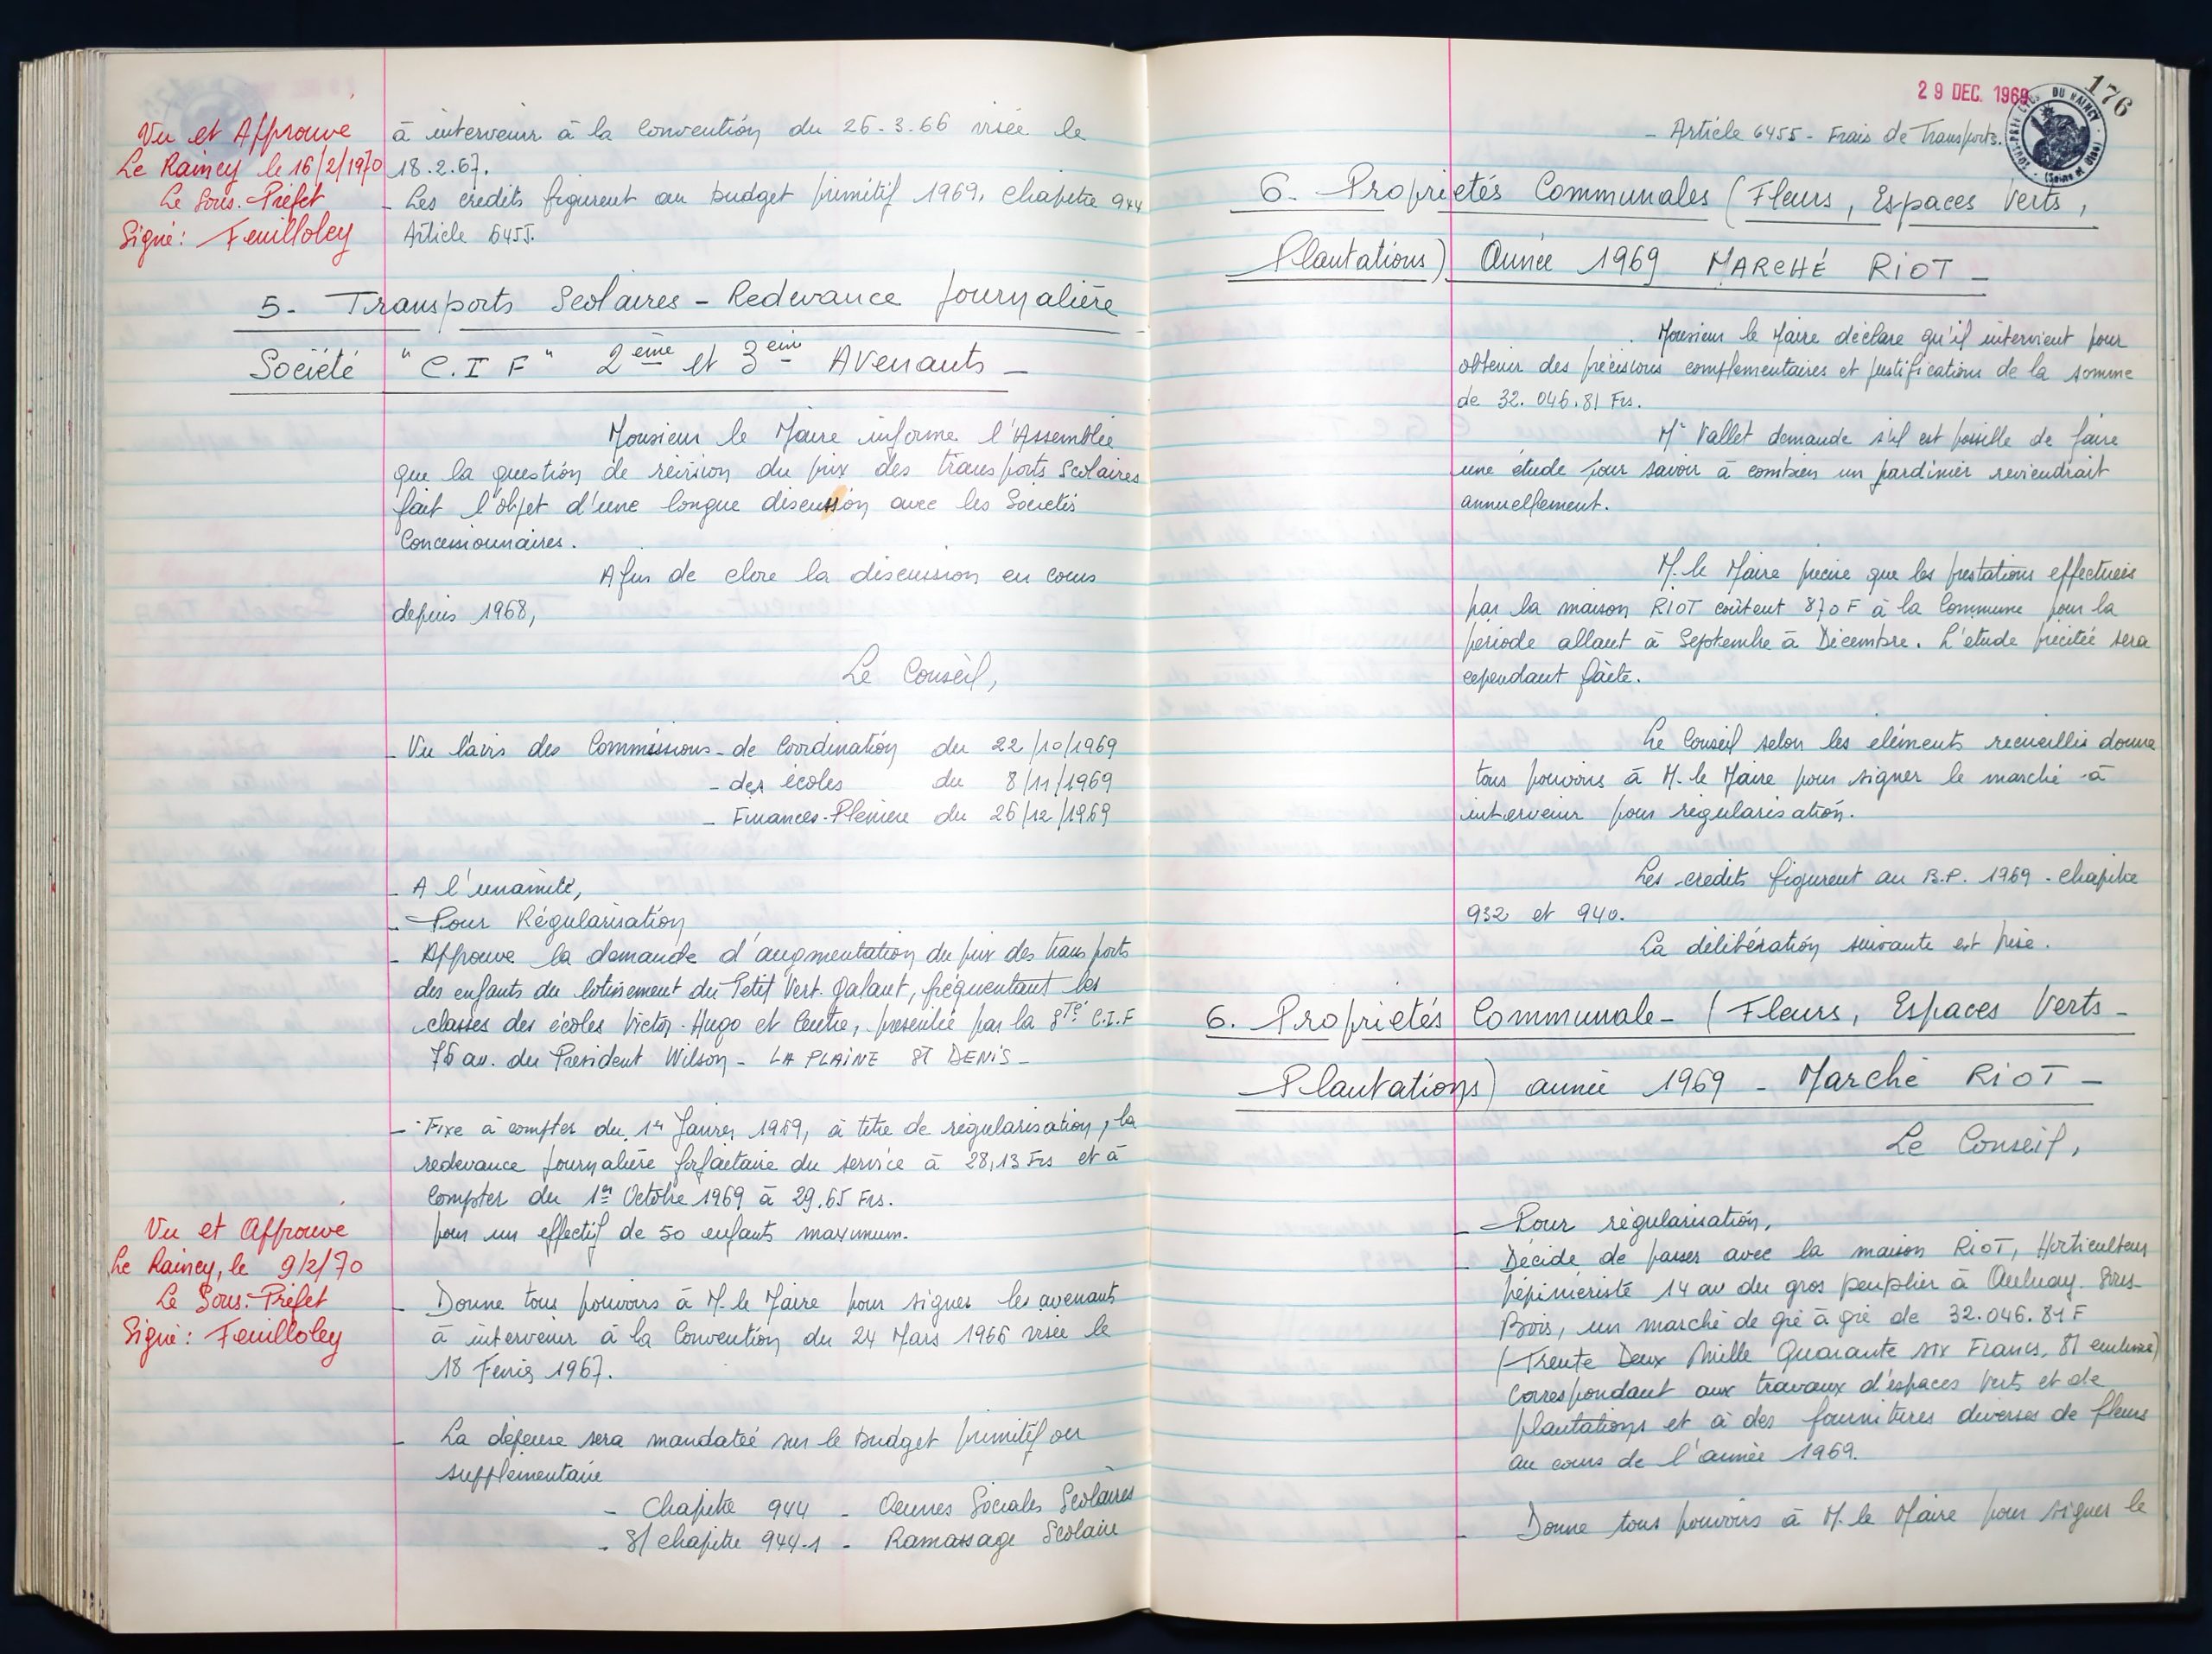 Vu et Approuvé
Le Raincy le 16/2/1970
Le Sous-Préfet
Signé: Feuilloley
à intervenir à la Convention du 26.3.66 visée le
18.2.67.
- Les crédits figurent au Budget primitif 1969, Chapitre 944
Article 6455.
5- Transports Scolaires - Redevance Journalière
Société "C.I F" 2ème et 3ème Avenants -
Monsieur le Maire informe l'Assemblée
que la question de révision du prix des transports Scolaires
fait l'objet d'une longue discussion avec les Sociétés
Concessionnaires.
Afin de clore la discussion en cours
depuis 1968,
Le Conseil,
- Vu l'avis des Commissions - de Coordination du 22/10/1969
- des écoles du 8/11/1969
- Finances-Plénière du 26/12/1969
- A l'unanimité,
- Pour Régularisation
- Approuve la demande d'augmentation du prix des transports
des enfants du lotissement du Petit Vert-Galant, fréquentant les
classes des écoles Victor-Hugo et Centre, présentée par la Sté C.I.F
76 av. du Président Wilson - LA PLAINE ST DENIS -
- Fixe à compter du 1er Janvier 1969, à titre de régularisation, la
redevance journalière forfaitaire du service à 28,13 Frs et à
Compter du 1er Octobre 1969 à 29.65 Frs.
pour un effectif de 50 enfants maximum.
Vu et Approuvé
Le Raincy, le 9/2/70
Le Sous-Préfet
Signé: Feuilloley
- Donne tous pouvoirs à M. le Maire pour signer les avenants
à intervenir à la Convention du 24 Mars 1966 visée le
18 Février 1967.
- La dépense sera mandatée sur le Budget primitif ou
supplémentaire
- Chapitre 944 - Oeuvres Sociales Scolaires
- S/ chapitre 944-1 - Ramassage Scolaire
29 DEC. 1969
176
SOUS-PRÉFECTURE DU RAINCY (Seine et Oise)
- Article 6455 - Frais de Transports.
6- Propriétés Communales (Fleurs, Espaces Verts,
Plantations) Année 1969 MARCHÉ RIOT -
Monsieur le Maire déclare qu'il intervient pour
obtenir des précisions complémentaires et justifications de la somme
de 32.046.81 Frs.
Mr Vallet demande s'il est possible de faire
une étude pour savoir à combien un jardinier reviendrait
annuellement.
M. le Maire précise que les prestations effectuées
par la maison RIOT coûtent 870 F à la Commune pour la
période allant à Septembre à Décembre. L'étude précitée sera
cependant faite.
Le Conseil selon les éléments recueillis donne
tous pouvoirs à M. le Maire pour signer le marché à
intervenir pour régularisation.
Les crédits figurent au B.P. 1969 - Chapitre
932 et 940.
La délibération suivante est prise.
6. Propriétés Communale - (Fleurs, Espaces Verts -
Plantations) année 1969 - Marché RIOT -
Le Conseil,
- Pour régularisation,
- Décide de passer avec la maison RIOT, Horticulteur
pépiniériste 14 av du gros peuplier à Aulnay-Sous-
Bois, un marché de gré à gré de 32.046.81 F
(Trente Deux Mille Quarante six Francs, 81 centimes)
Correspondant aux travaux d'espaces Verts et de
plantations et à des fournitures diverses de fleurs
au cours de l'année 1969.
- Donne tous pouvoirs à M. le Maire pour signer le